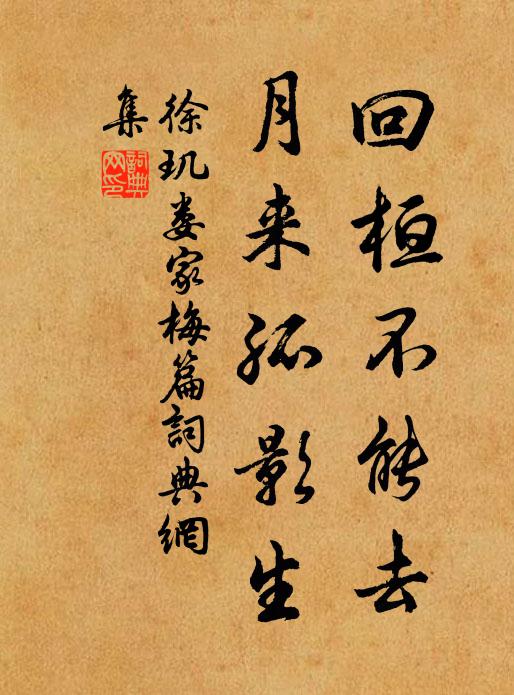 回桓不能去
月来孤影生
徐玑娄家梅篇詞典網
集
詞典
网印